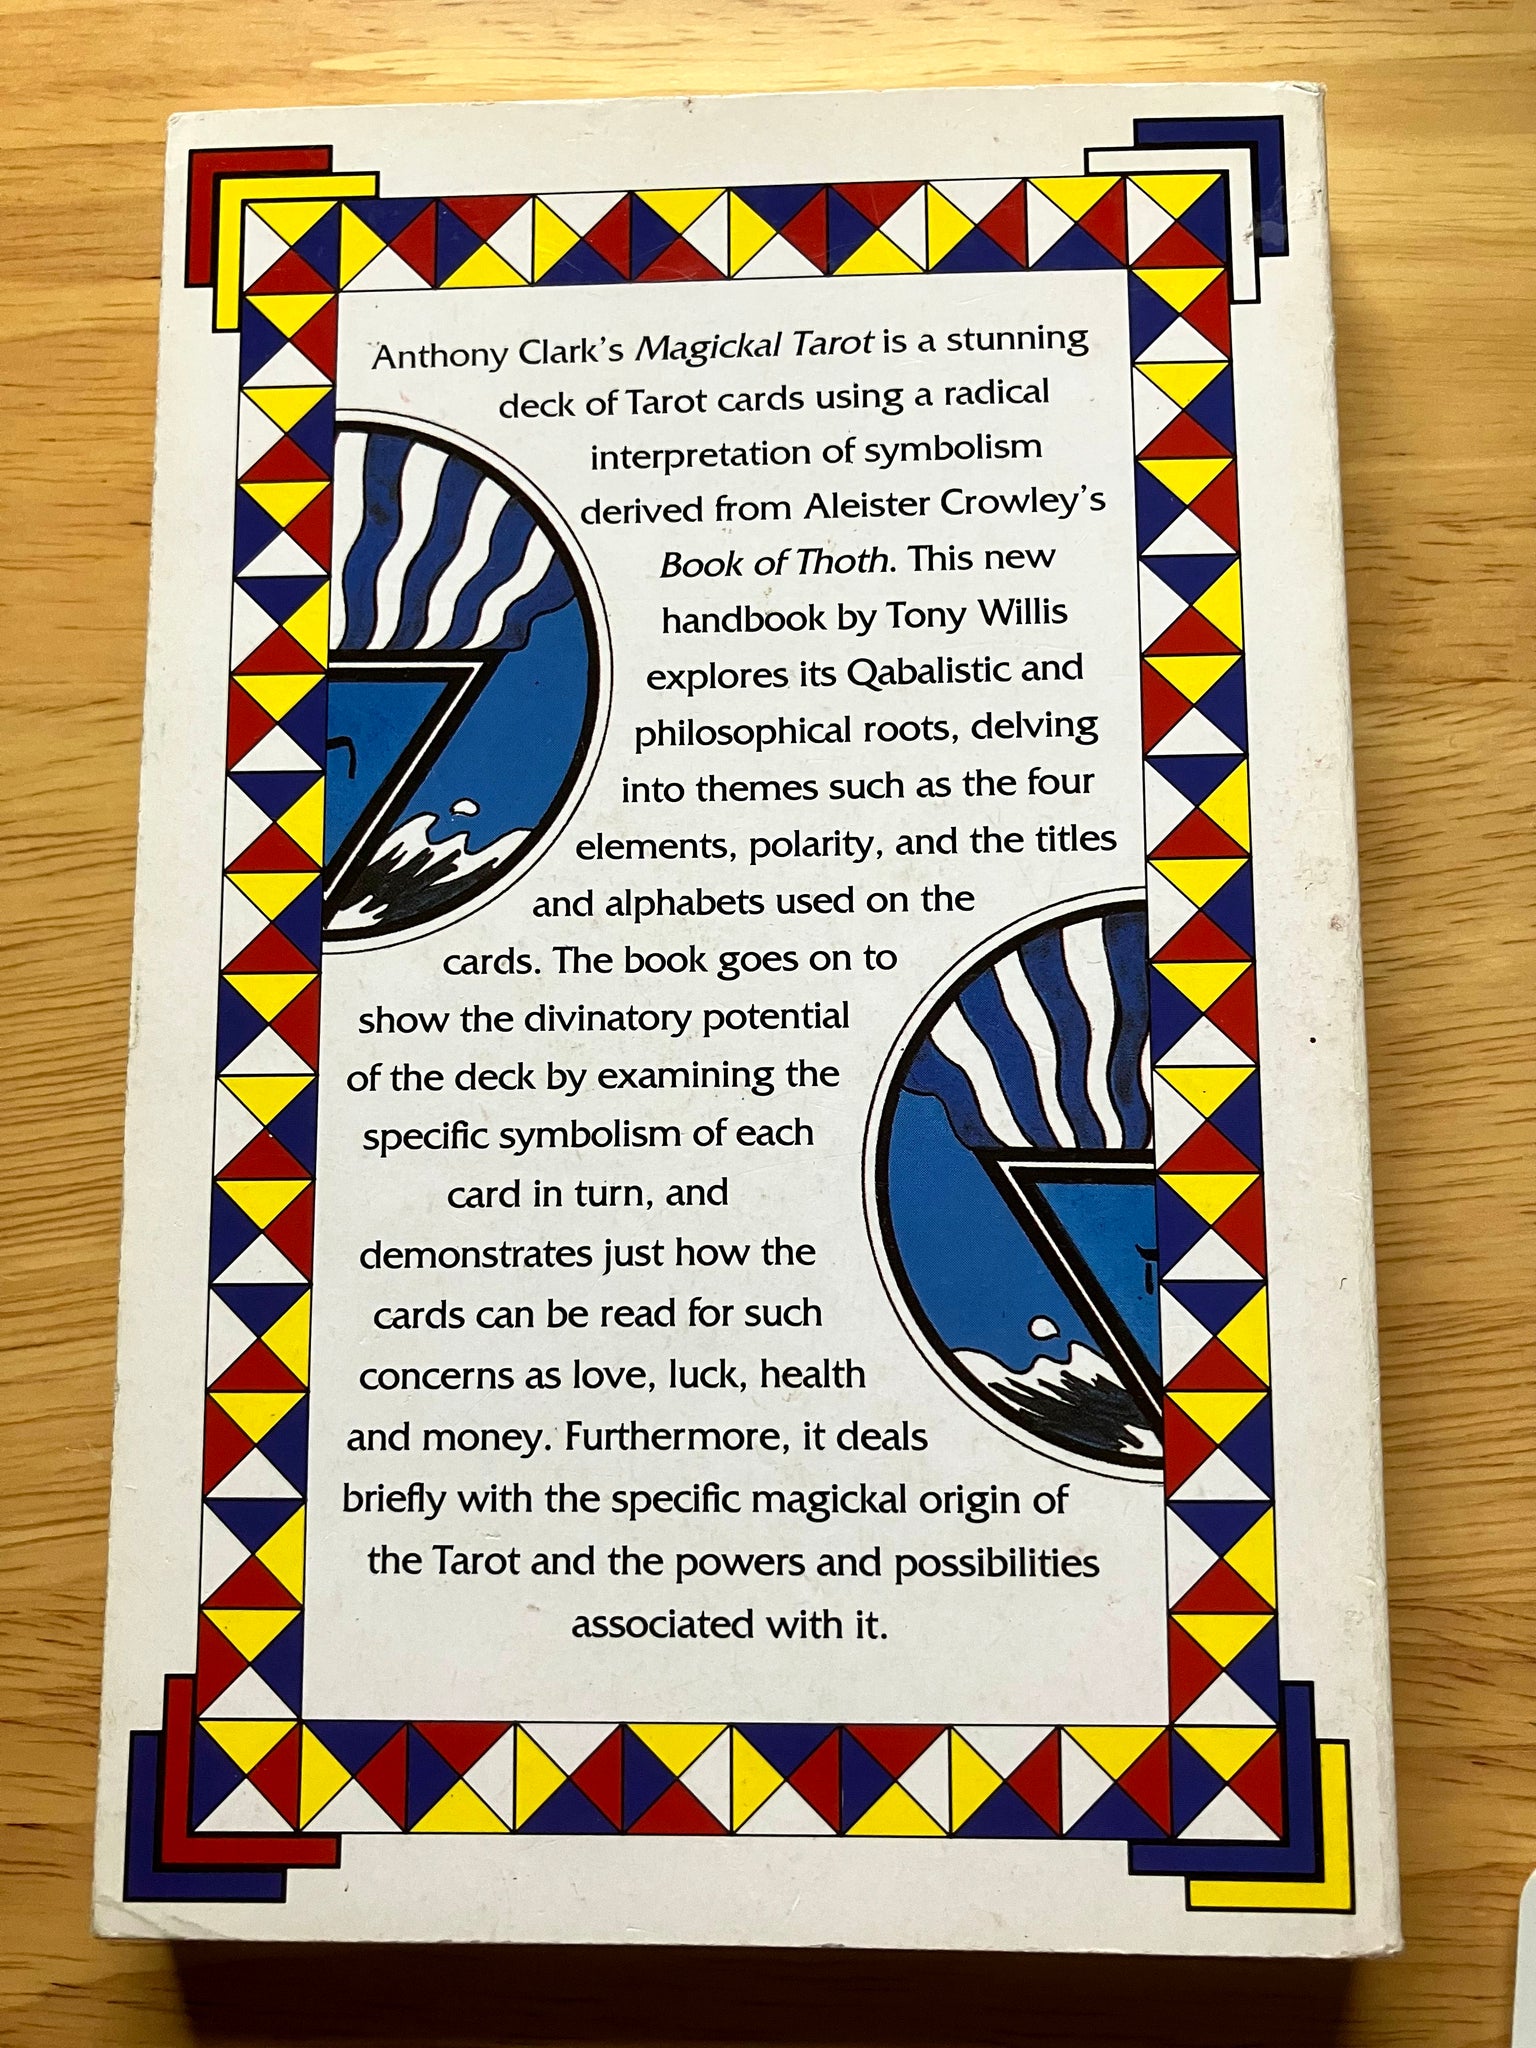 Anthony Clark's Magickal Tarot is a stunning
deck of Tarot cards using a radical
interpretation of symbolism
derived from Aleister Crowley's
Book of Thoth. This new
handbook by Tony Willis
explores its Qabalistic and
philosophical roots, delving
into themes such as the four
elements, polarity, and the titles
and alphabets used on the
cards. The book goes on to
show the divinatory potential
of the deck by examining the
specific symbolism of each
card in turn, and
demonstrates just how the
cards can be read for such
concerns as love, luck, health
and money. Furthermore, it deals
briefly with the specific magickal origin of
the Tarot and the powers and possibilities
associated with it.